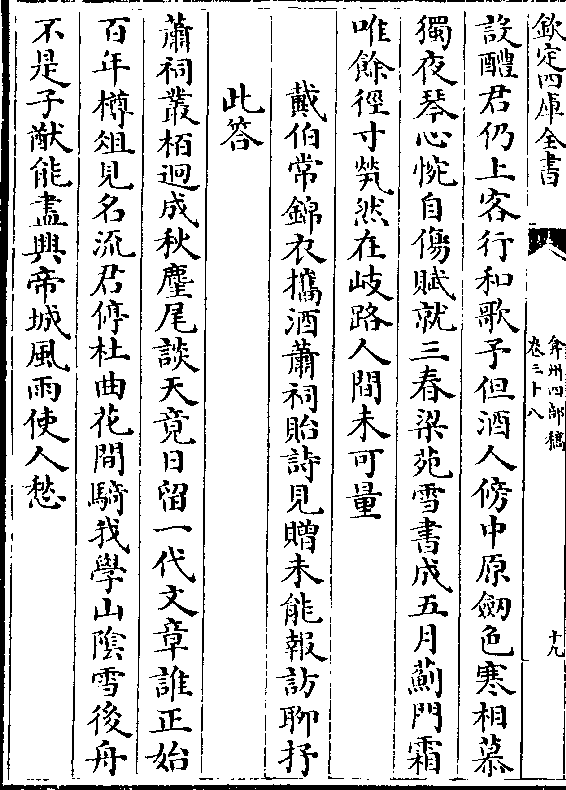 欽定四庫全書
弇州四部稿
卷三十八
十九
設醴君仍上客行和歌予但酒人傍中原劒色寒相慕
獨夜琴心惋自傷賦就三春梁苑雪書成五月薊門霜
唯餘徑寸煢然在岐路人間未可量
戴伯常錦衣攜酒蕭祠貽詩見贈未能報訪聊抒
此答
蕭祠叢栢迥成秋麈尾談天竟日留一代文章誰正始
百年樽俎見名流君停杜曲花間騎我學山陰雪後舟
不是子猷能盡興帝城風雨使人愁